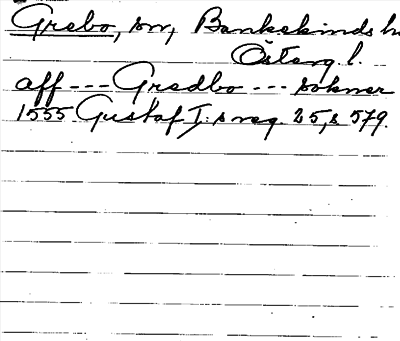 Grebo, sn, Bankekinds h
Österg. l.
aff --- Gredbo --- sokner
1555 Gustaf I:s reg. 25, s 579.